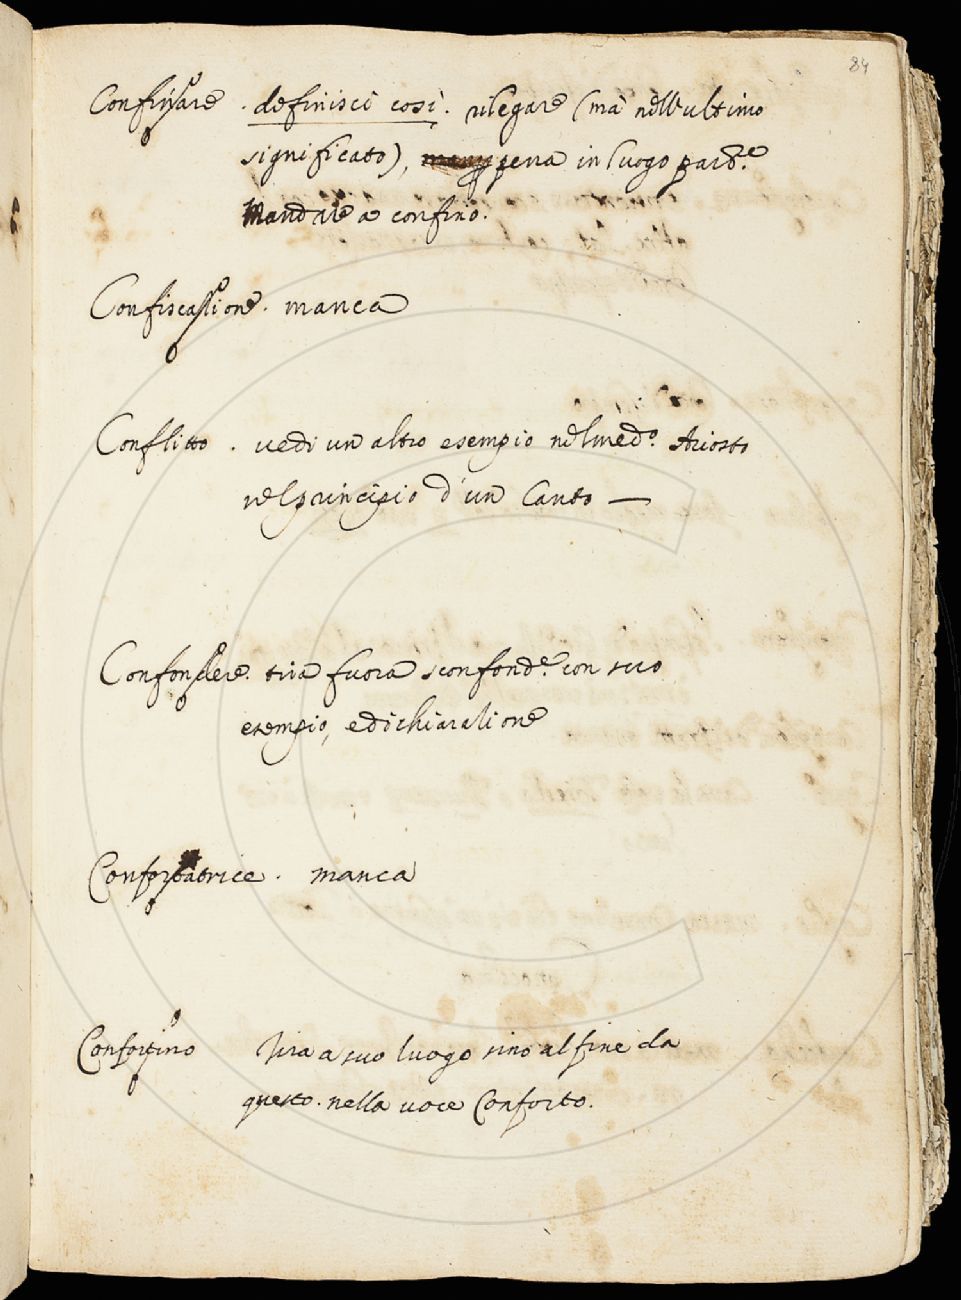 84
Confinare. definisci così. rilegare (mà nell'ultimo
significato), pena in luogo part.e
Mandare a confino.
Confiscazione. manca
Conflitto. vedi un altro esempio nel med.o Ariosto
nel principio d'un Canto —
Confondere. tira fuora sconfond.e con suo
esempio, e dichiarazione
Confortatrice. manca
Confortino tira a suo luogo sino al fine da
questo. nella voce Conforto.